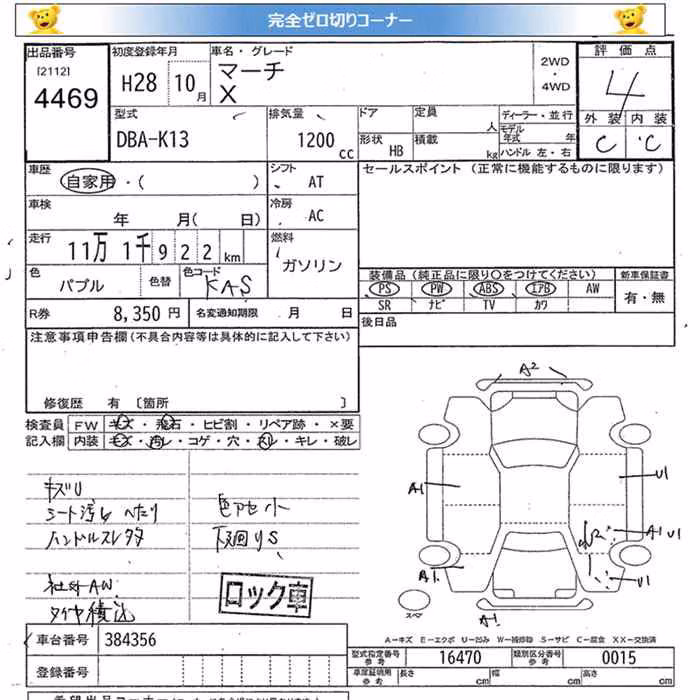 完全ゼロ切りコーナー
出品番号
[2112]
4469
初度登録年月
H28 10月
車名・グレード
マーチ
X
2WD
・
4WD
評価点
4
外装 内装
C ・C
型式
DBA-K13
排気量
1200 cc
ドア
形状 HB
定員 人
積載 kg
ディーラー・並行
モデル年式 年
ハンドル 左・右
車歴
自家用・( )
シフト
AT
セールスポイント (正常に機能するものに限ります)
車検
年 月( 日)
冷房
AC
走行
11万 1千 9 2 2 km
燃料
ガソリン
色
パプル
色替
色コード
KAS
装備品(純正品に限り○をつけてください)
PS PW ABS エアB AW
SR ナビ TV カワ
新車保証書
有・無
R券 8,350 円
名変通知期限 月 日
後日品
注意事項申告欄(不具合内容等は具体的に記入して下さい)
修復歴 有 〔箇所 〕
検査員記入欄
FW キズ・飛石・ヒビ割・リペア跡・×要
内装 キズ・汚レ・コゲ・穴・スレ・キレ・破レ
キズU
シート汚レ ヘタリ
ハンドルスレ
社外AW
タイヤ積込
色アセ小
下廻りS
ロック車
A2
A1
U1
A1 U1
A1
U1
A1
スペア
A-キズ E-エクボ U-凹み W-補修跡 S-サビ C-腐食 XX-交換済
車台番号 384356
登録番号
型式指定番号 参考 16470
類別区分番号 参考 0015
車庫証明用 参考
長さ cm
幅 cm
高さ cm
希望出品コーナー